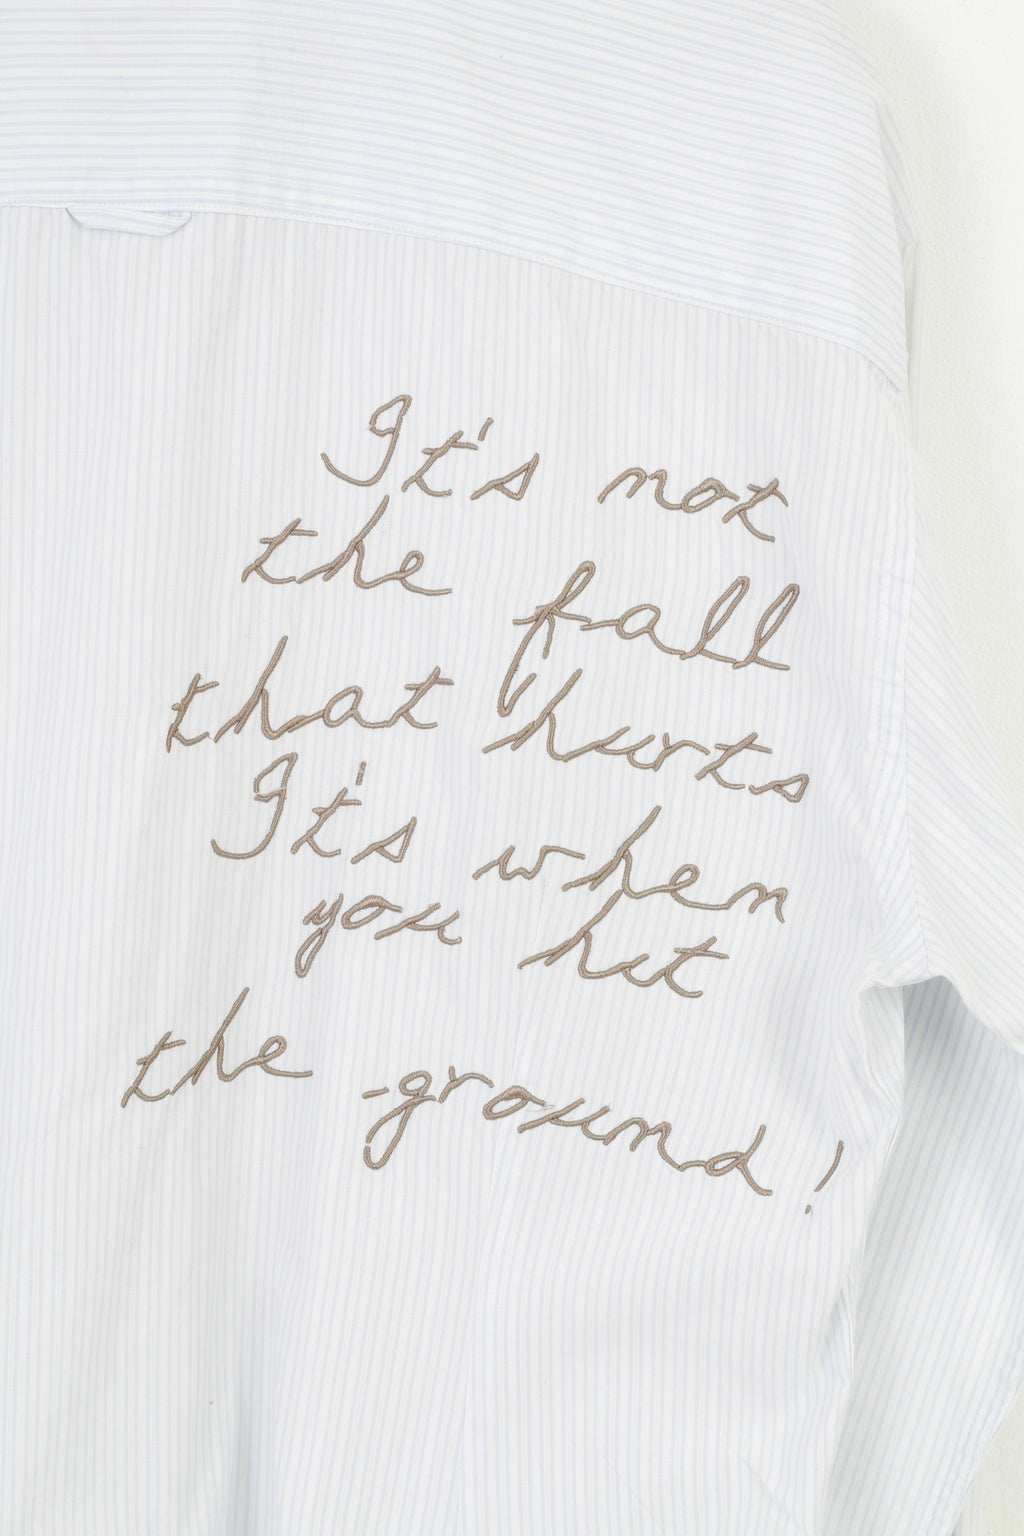 It's not
the fall
that hurts
It's when
you hit
the ground!